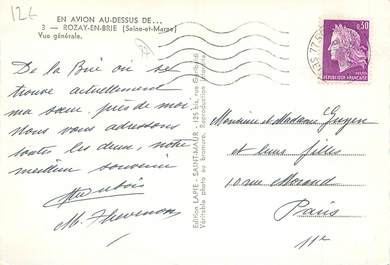 126
EN AVION AU-DESSUS DE...
3 - ROZAY-EN-BRIE (Seine-et-Marne)
Vue générale.
De la Brie où se
trouve actuellement
ma sœur près de moi
Nous vous adressons
toutes les deux, notre
meilleur souvenir
Dubois
M. Thevenon
Edition LAPIE - SAINT-MAUR - 125 bis, rue Garibaldi
Véritable photo au bromure. Reproduction interdite.
0,30
REPUBLIQUE FRANÇAISE
Monsieur et Madame Guyen
et leurs filles
10 rue Morand
Paris
11e